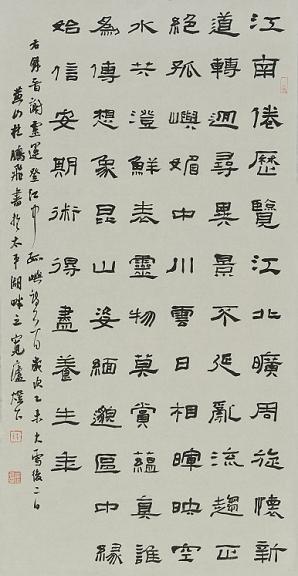 江南倦歷覽江北曠周旋懷新
道轉迥尋異景不延亂流趨正
絕孤嶼媚中川雲日相暉映空
水共澄鮮表靈物莫賞蘊真誰
為傳想象昆山姿緬邈區中緣
始信安期術得盡養生年
右錄晉謝靈運登江中孤嶼詩一首歲次乙未大雪後二日
燕山杜騰飛書於太平湖畔之寬廬燈下